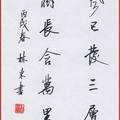 已發三層
長合萬里
丙戌春
林東書